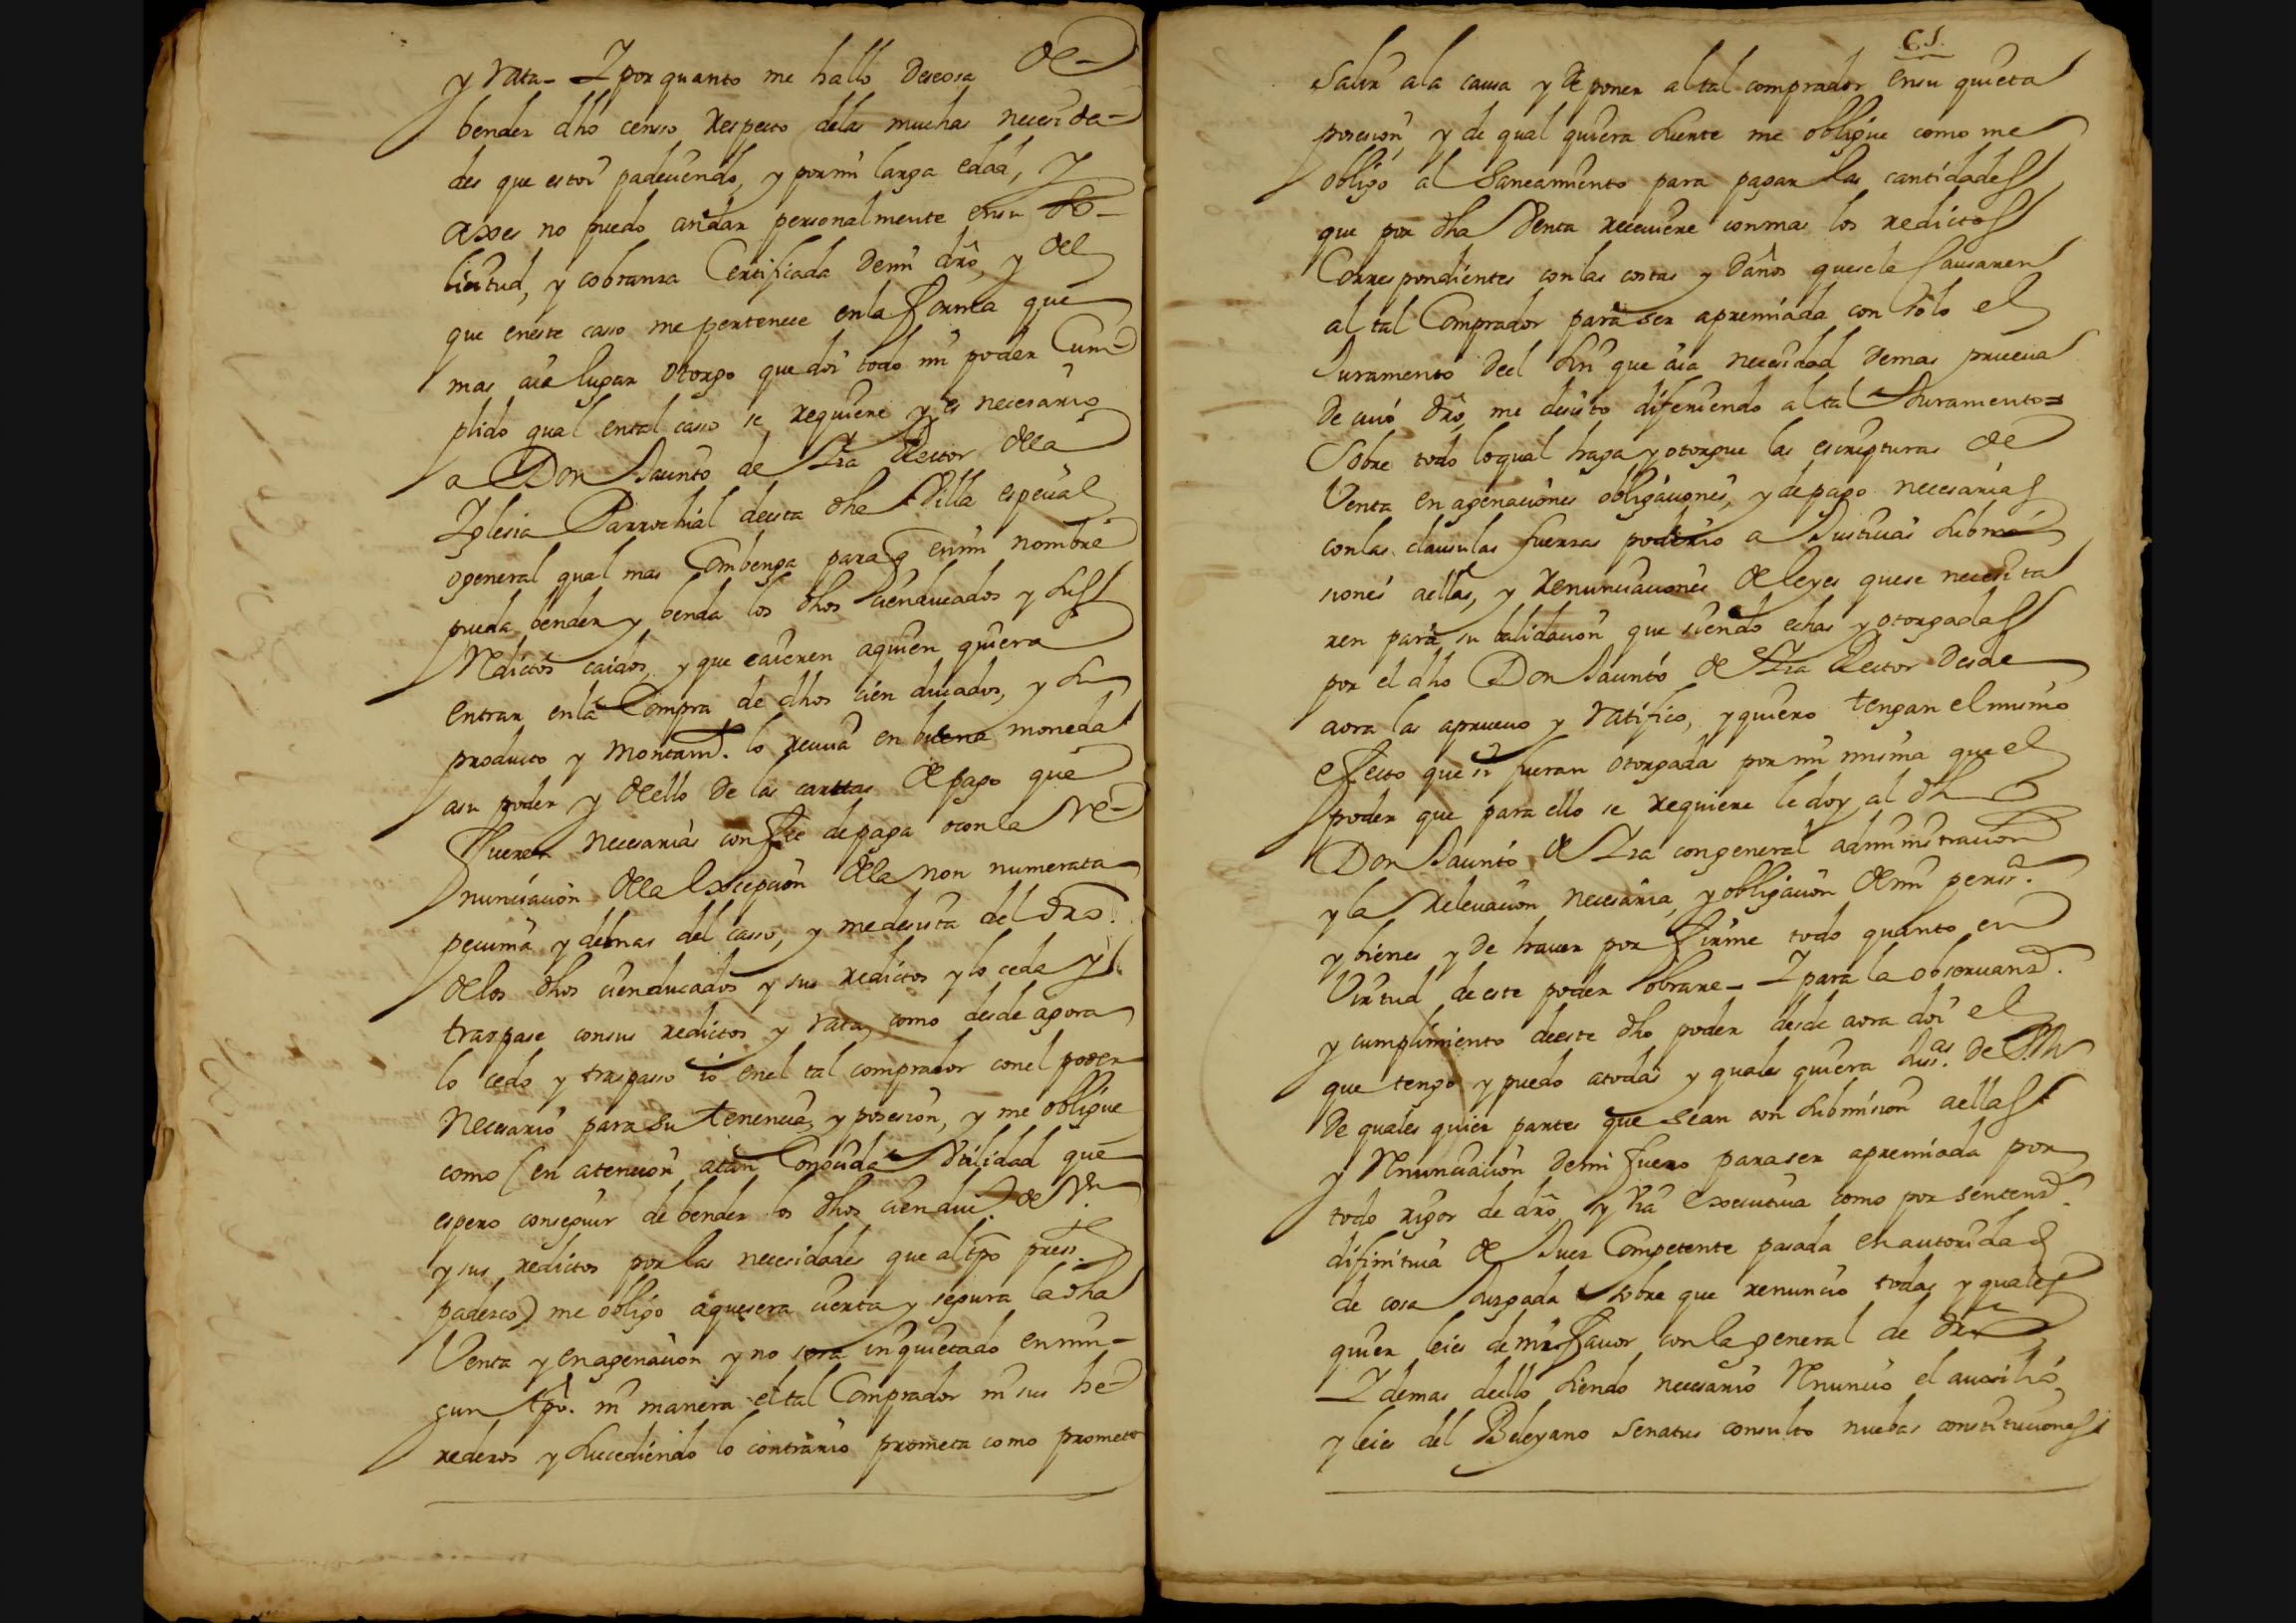 y rata- Y por quanto me hallo deseosa de-
bender dho censo respecto delas muchas necesida-
des que estoi padeciendo, y pormi larga edad, y
axes no puedo andar personalmente ensu so-
licitud, y cobranza Certificada demi dro, y del
que eneste casso me pertenece enla forma que
mas aia lugar otorgo que doi todo mi poder Cum-
plido qual ental casso se requiere y es necesario
a Don Jacinto de Rector dela
Iglesia Parrochial deesta dha Villa especial
ogeneral qual mas Combenga para q enmi nombre
pueda bender y benda los dhos cienducados y sus
Redictos caidos, y que caieren aquien quiera
entrar enla Compra de dhos cien ducados, y su
producto y montamto. lo reciva en buena moneda
asu poder y dello de las carttas de pago que
fueren necesarias con fee depaga oconla re-
nunciacion dela excepcion dela non numerata
pecunia y demas del casso, y medesista del dro.
delos dhos cienducados y sus redictos y lo ceda y
traspase consus redictos y rata, como desde agora
lo cedo y traspasso io enel tal comprador conel poder
necesario para su tenencia, y posesion, y me obligue
como (en atencion atan Conocida Utilidad que
espero conseguir de bender los dhos cien duc.s de Vn.
y sus redictos por las necesidades que altpo press.te
padezco) me obligo aquesera cierta y segura la dha
Venta y enagenacion y no sera inquietado ennin-
gun tpo. ni manera el tal Comprador ni sus he-
rederos y sucediendo lo contrario prometa como prometo
CI.
Salir ala causa y de poner altal comprador ensu quieta
posesion, y de qual quiera suerte me obligue como me
obligo al saneamiento para pagar las cantidades
que por dha Venta receviere conmas los redictos
Correspondientes conlas costas y daños quesele causaren
al tal Comprador para ser apremiada con solo el
Juramento del sin que aia necesidad demas prueva
de cuio dro, me desisto difiriendo altal Juramento=
Sobre todo loqual haga y otorgue las escripturas de
Venta enagenaciones obligaciones, y depago necesarias
conlas clausulas fuerzas poderio a Justicias submi-
siones aellas, y renunciaciones de leyes quese necesita
ren para su balidacion que siendo echas y otorgadas
por el dho Don Jacinto de Rector desde
aora las apruevo y ratifico, y quiero tengan el mismo
efecto que si fueran otorgadas por mi misma que el
poder que para ello se requiere le doy al dho
Don Jacinto de congeneral administracion
y la relevacion necesaria, y obligacion de mi perss.a
y bienes y de haver por firme todo quanto en
Virtud de este poder obrare- Y para la observanz.a
y cumplimiento deeste dho poder desde aora doi el
que tengo y puedo atodas y quales quiera Juss.as de SM
de quales quier partes que sean con submision aellas
y Renunciacion demi fuero paraser apremiada por
todo rigor de dro, y via executiva como por sentenz.a
difinitiva de Juez Competente pasada en autoridad
de cosa Juzgada sobre que renuncio todas y quales
quier leies de mi favor con la general de dro
Y demas dello siendo necesario Renuncio el auxilio,
y leies del Beleyano senatus consulto nuebas constituciones